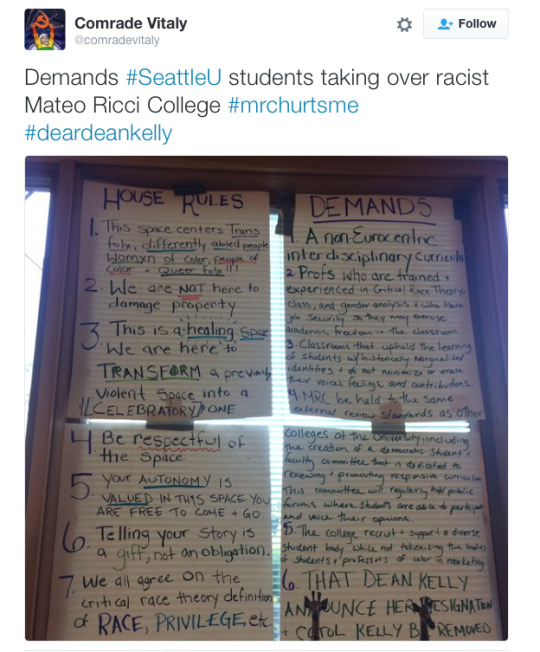 Comrade Vitaly
@comradevitaly
Follow
Demands #SeattleU students taking over racist
Mateo Ricci College #mrchurtsme
#deardeankelly
HOUSE RULES
1. This space centers Trans
folx, differently abled people
Womxn of Color, people of
color + Queer folx!!!
2. We are NOT here to
damage property
3. This is a healing space
We are here to
TRANSFORM a previously
Violent Space into a
CELEBRATORY ONE
4. Be respectful of
the space.
5. Your AUTONOMY IS
VALUED IN THIS SPACE YOU
ARE FREE TO COME + GO.
6. Telling your story is
a gift, not an obligation.
7. We all agree on the
critical race theory definition
of RACE, PRIVILEGE, etc
DEMANDS
1. A non Eurocentric
interdisciplinary curricula
2 Profs who are trained +
experienced in Critical Race Theory,
class, and gender analysis + who have
job security so they may exercise
academic freedom in the classroom
3. Classrooms that uphold the learning
of students w/ historically marginalized
identities + do not minimize or erase
their voices feelings, and contributions.
4. MRC be held to the same
external review standards as other
colleges at the University, including
the creation of a democratic student +
faculty committee that is dedicated to
renewing + promoting responsive curriculum
This committee will regularly hold public
forums where students are able to participate
and voice their opinions.
5. The college recruit + support a diverse
student body while not tokenizing the bodies
of students + professors of color in marketing.
6. THAT DEAN KELLY
ANNOUNCE HER RESIGNATION
+ KELLY BE REMOVED